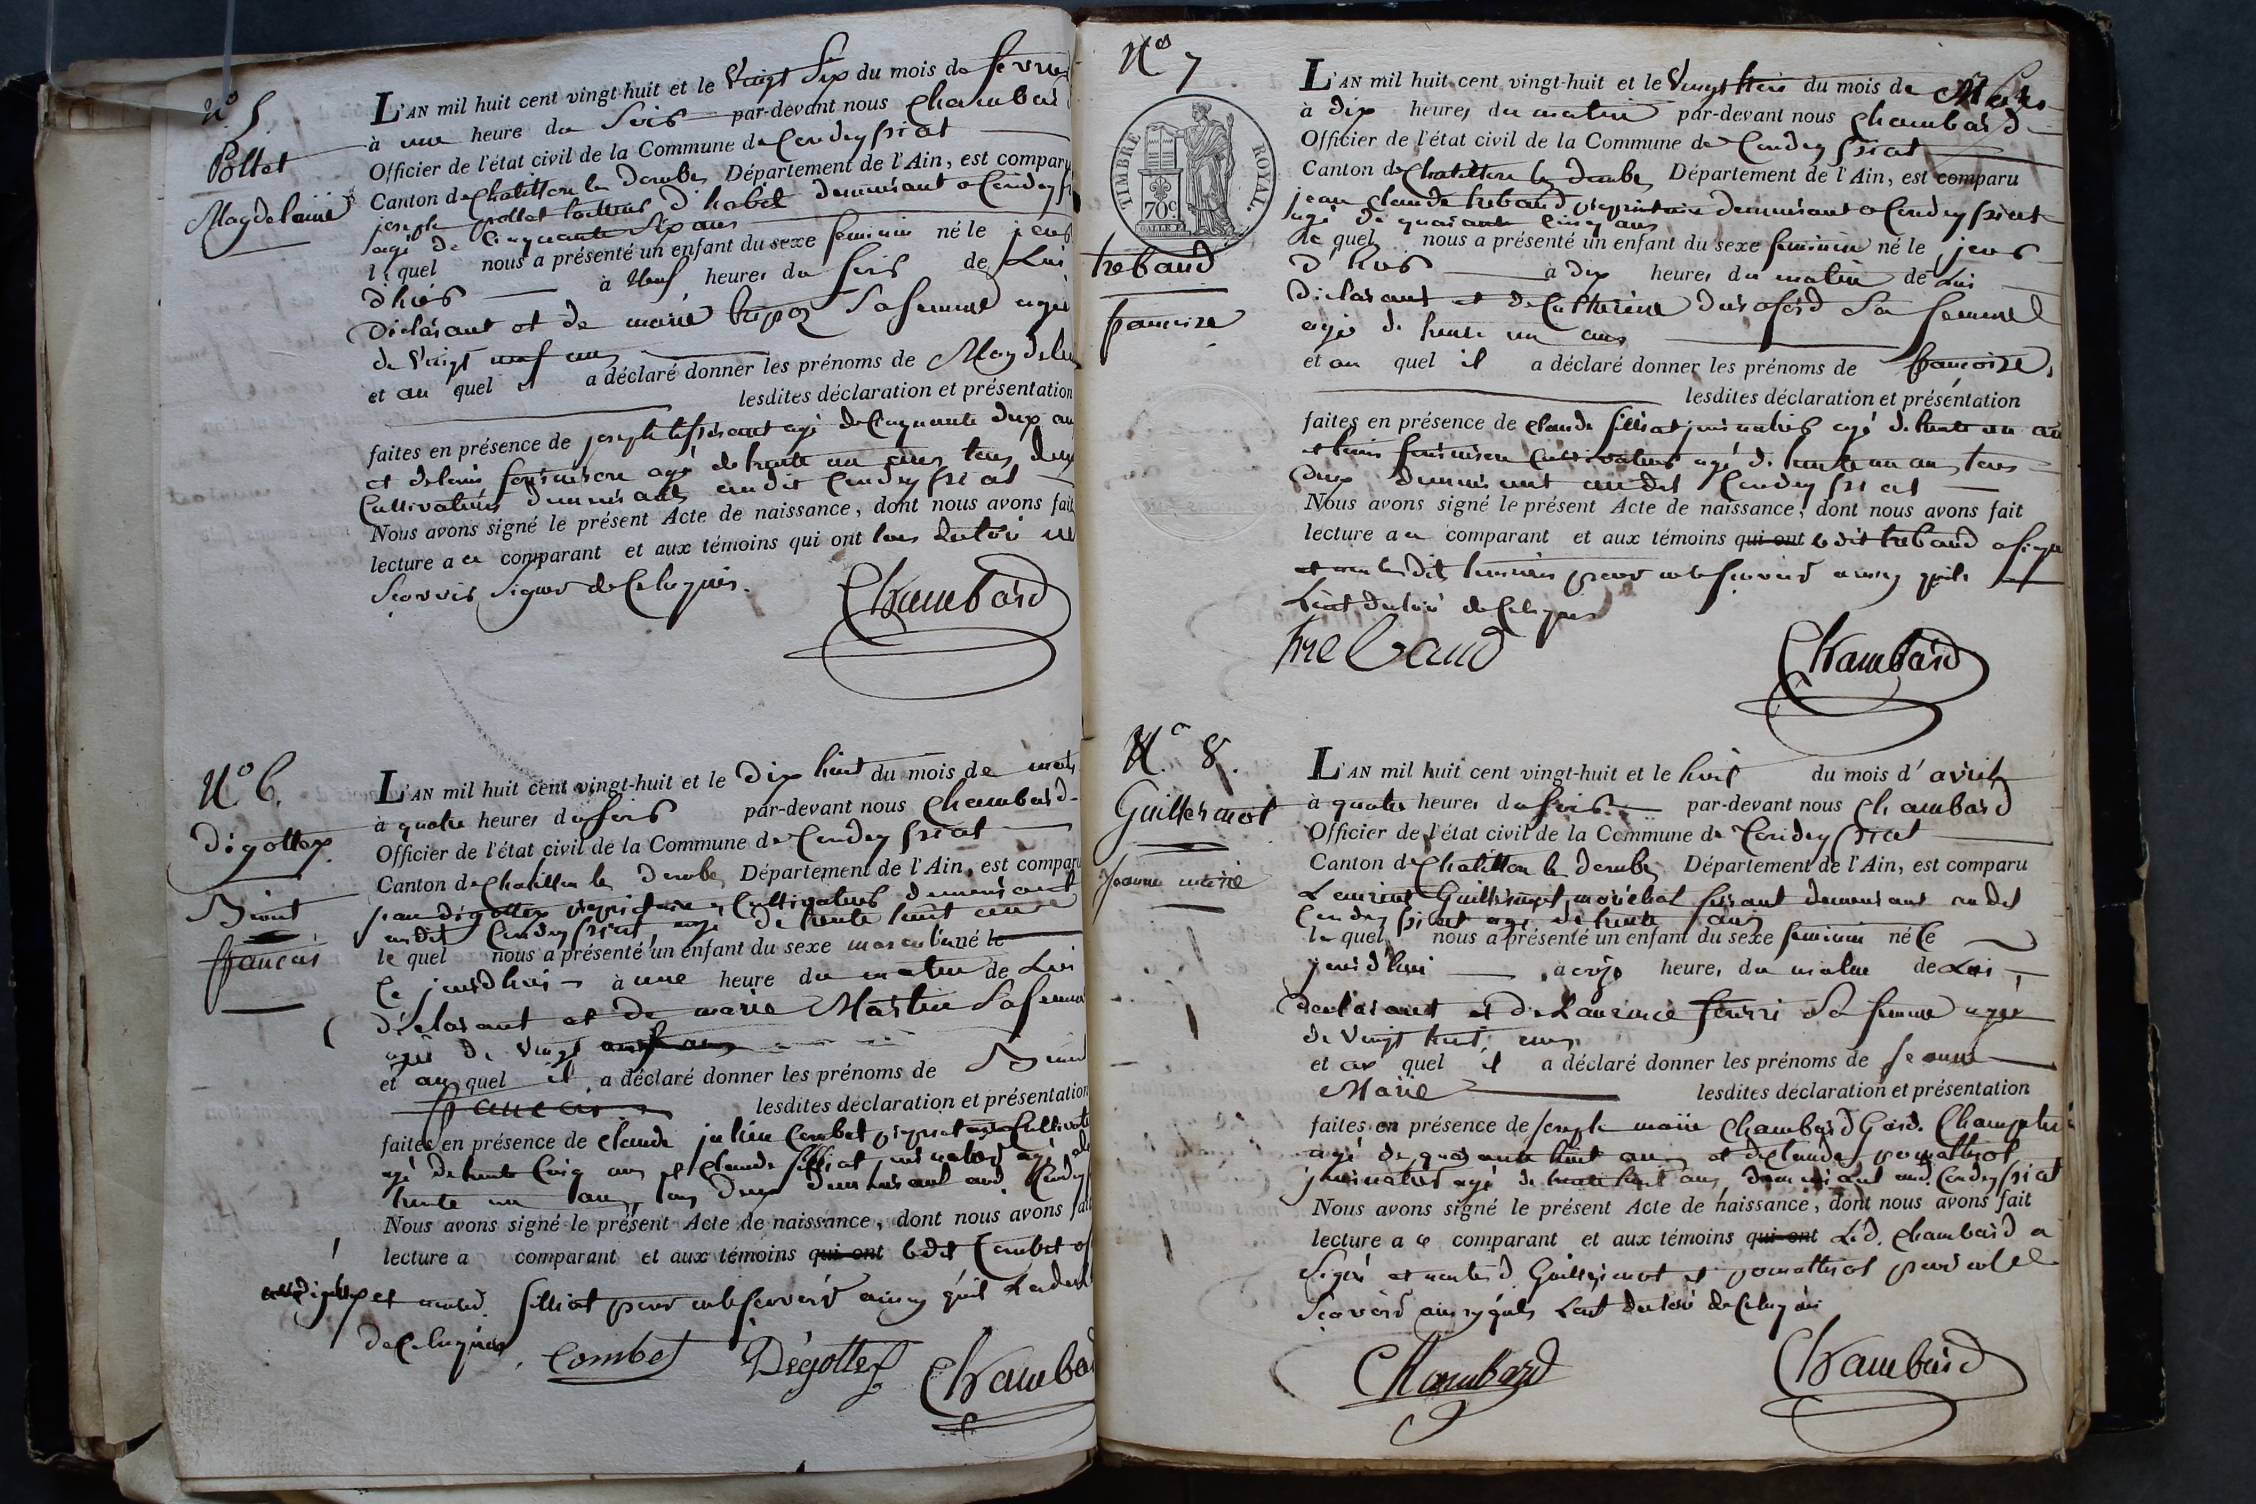 N° 5.
Pollet
Magdelaine
L'AN mil huit cent vingt-huit et le Vingt Six du mois de fevrie
à une heure du Soir par-devant nous Chambard
Officier de l'état civil de la Commune de Condeyssiat
Canton de Chatillon les dombes Département de l'Ain, est comparu
joseph pollet d'habit demeurant a Condeyssi
agé de Cinquante Six ans
le quel nous a présenté un enfant du sexe feminin né le jour
d'hier à Neuf heures du soir de Lui
Déclarant et de marie Sa femme agée
de Vingt neuf ans
et au quel il a déclaré donner les prénoms de Magdelai
lesdites déclaration et présentation
faites en présence de joseph agé de Cinquante deux ans
et de louis ferisison agé de trente un ans tous deux
Cultivateurs demeurants audit Condeyssiat
Nous avons signé le présent Acte de naissance, dont nous avons fait
lecture a ce comparant et aux témoins qui ont tous declaré ne
Scavoir Signer de Ce enquis.
Chambard
N° 6.
Digottex
Benoit
francois
L'AN mil huit cent vingt-huit et le Dix huit du mois de mars
à quatre heures du soir par-devant nous Chambard
Officier de l'état civil de la Commune de Condeyssiat
Canton de Chatillon les dombes Département de l'Ain, est comparu
jean digottex proprietaire Cultivateur demeurant
audit Condeyssiat, agé de trente huit ans
le quel nous a présenté un enfant du sexe masculin né le
Ce jourd'hui à une heure du matin de Lui
déclarant et de marie Martin Sa femme
agée de Vingt neuf ans
et au quel il a déclaré donner les prénoms de Benoit
francois lesdites déclaration et présentation
faites en présence de Claude julien Combet Cultivate
agé de trente Cinq ans et Claude filliat agé de
trente un ans tous deux demeurant aud. Condey
Nous avons signé le présent Acte de naissance, dont nous avons fait
lecture a comparant et aux témoins qui ont ledit Combet
digottex et non led. filliat pour ne scavoir ainsy qu'il
de Ce enquis
Combet Dégottex Chambard
N° 7
TIMBRE ROYAL.
70c.
trebaud
francoise
L'AN mil huit cent vingt-huit et le Vingt trois du mois de Mars
à dix heures du matin par-devant nous Chambard
Officier de l'état civil de la Commune de Condeyssiat
Canton de Chatillon les dombes Département de l'Ain, est comparu
jean claude trebaud proprietaire demeurant a Condeyssiat
agé de quarante Cinq ans
le quel nous a présenté un enfant du sexe feminin né le jour
d'hier à dix heures du matin de Lui
Declarant et de Catherine Sa femme
agée de trente un ans
et au quel il a déclaré donner les prénoms de francoise,
lesdites déclaration et présentation
faites en présence de claude filliat journalier agé de trente un ans
et louis ferisison Cultivateur agé de trente un ans tous
deux demeurant audit Condeyssiat
Nous avons signé le présent Acte de naissance, dont nous avons fait
lecture a ce comparant et aux témoins qui ont ledit trebaud a signé
et non lesdits temoins pour ne scavoir ainsy qu'ils
L'ont declaré de Ce enquis
trebaud Chambard
N° 8.
Guillermot
Jeanne marie
L'AN mil huit cent vingt-huit et le huit du mois d'avril
à quatre heures du soir par-devant nous Chambard
Officier de l'état civil de la Commune de Condeyssiat
Canton de Chatillon les dombes Département de l'Ain, est comparu
Laurent Guillermot maréchal demeurant audit
Condeyssiat agé de trente ans
le quel nous a présenté un enfant du sexe feminin né Ce
jourd'hui a onze heures du matin de Lui
declarant et de Laurence Sa femme agée
de Vingt huit ans
et au quel il a déclaré donner les prénoms de Jeanne
Marie lesdites déclaration et présentation
faites en présence de Joseph marie Chambard Gard. Champetre
agé de quarante huit ans et de Claude pomathiot
journalier agé de trente huit ans, demeurant aud. Condeyssiat
Nous avons signé le présent Acte de naissance, dont nous avons fait
lecture a ce comparant et aux témoins qui ont Led. Chambard a
Signé et non led. Guillermot et pomathiot pour ne le
Scavoir ainsy qu'ils L'ont declaré de Ce enquis
Chambard Chambard